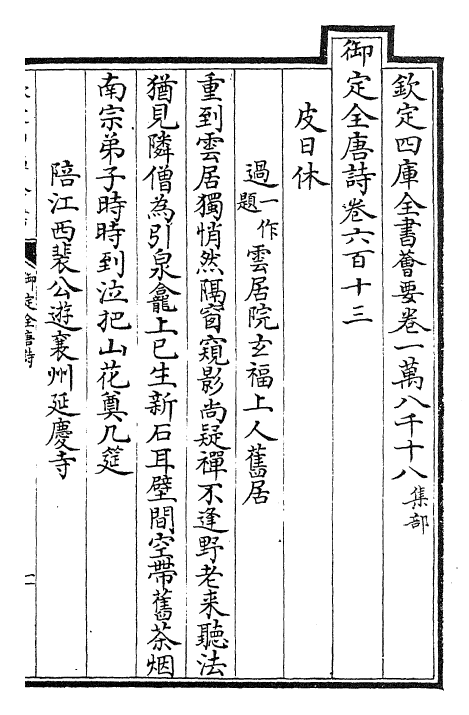 欽定四庫全書薈要卷一萬八千十八集部
御定全唐詩卷六百十三
皮日休
過一作題雲居院玄福上人舊居
重到雲居獨悄然隔窗窺影尚疑禪不逢野老来聽法
猶見隣僧為引泉龕上已生新石耳壁間空帶舊茶烟
南宗弟子時時到泣把山花奠几筵
陪江西裴公遊襄州延慶寺
御定全唐詩
一